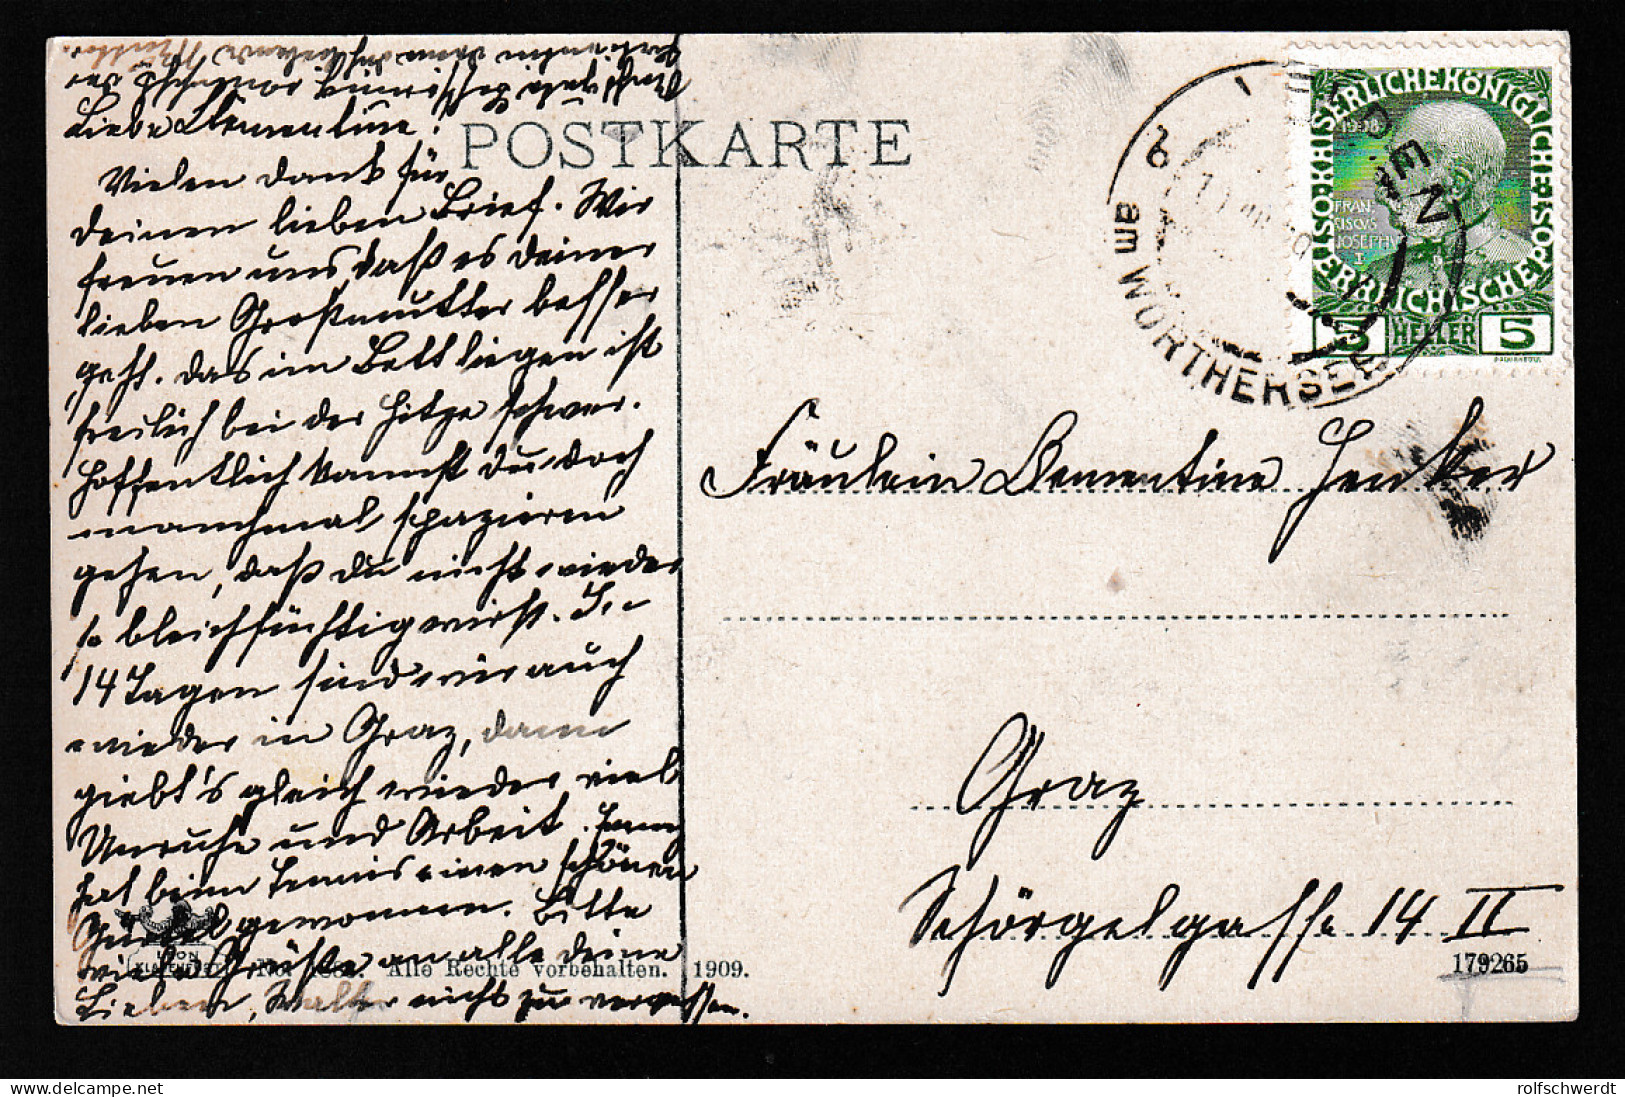 Liebe Clementine!
Vielen Dank für
Deinen lieben Brief. Wir
freuen uns, daß es Deiner
lieben Großmutter besser
geht. Das im Bett liegen ist
freilich bei der Hitze schwer.
Hoffentlich kannst Du doch
manchmal spazieren
gehen, daß Du nicht wieder
so bleichsüchtig wirst. In
14 Tagen sind wir auch
wieder in Graz, dann
giebt's gleich wieder viel
Unruhe und Arbeit.
hat beim Tennis einen schönen
Gürtel gewonnen. Bitte
viele Grüße an alle Deine
Lieben, Walter nicht zu vergessen.
POSTKARTE
KAISERLICHEKÖNIGLICHE ÖSTERREICHISCHE POST
1908
FRAN-
CISCVS
JOSEPHVS
I
5 HELLER 5
am WÖRTHERSEE
Fräulein Clementine
Graz
Schörgelgasse 14 II
Alle Rechte vorbehalten. 1909.
179265
rolfschwerdt